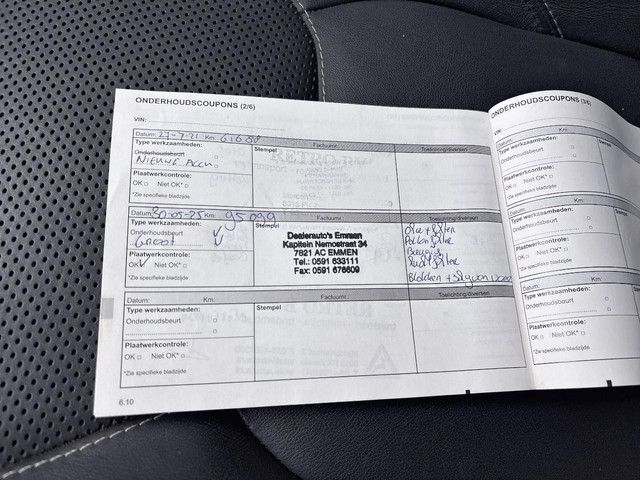 ONDERHOUDSCOUPONS (2/6)
VIN:
Datum: 27-7-21 Km:
Factuurnr.:
Toelichting/diversen:
Type werkzaamheden:
Stempel
Onderhoudsbeurt
NIEUWE ACCU
Plaatwerkcontrole:
OK Niet OK*
*Zie specifieke bladzijde
Datum: 30-05-25 Km: 95099
Factuurnr.:
Toelichting/diversen:
Type werkzaamheden:
Stempel
Onderhoudsbeurt
Groot
Plaatwerkcontrole:
OK Niet OK*
*Zie specifieke bladzijde
Dealerauto's Emraan
Kapitein Nemostraat 34
7821 AC EMMEN
Tel.: 0591 633111
Fax: 0591 678609
Olie + filter
Pollenfilter
Luchtfilter
Datum: Km:
Factuurnr.:
Toelichting/diversen:
Type werkzaamheden:
Stempel
Onderhoudsbeurt
Plaatwerkcontrole:
OK Niet OK*
*Zie specifieke bladzijde
6.10
ONDERHOUDSCOUPONS (3/6)
VIN:
Datum: Km:
Type werkzaamheden:
Stempel
Onderhoudsbeurt
Plaatwerkcontrole:
OK Niet OK*
*Zie specifieke bladzijde
Datum: Km:
Type werkzaamheden:
Stempel
Onderhoudsbeurt
Plaatwerkcontrole:
OK Niet OK*
*Zie specifieke bladzijde
Datum: Km:
Type werkzaamheden:
Onderhoudsbeurt
Plaatwerkcontrole:
OK Niet OK*
*Zie specifieke bladzijde